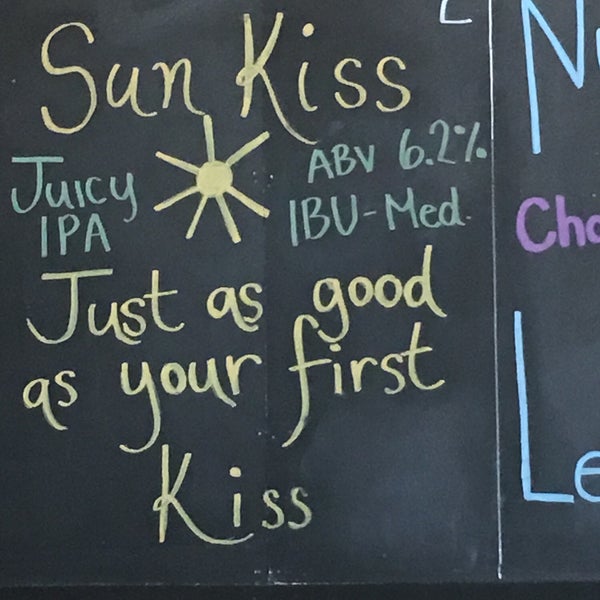 Sun Kiss
Juicy
IPA
ABV 6.2%
IBU-Med.
Just as good
as your first
Kiss